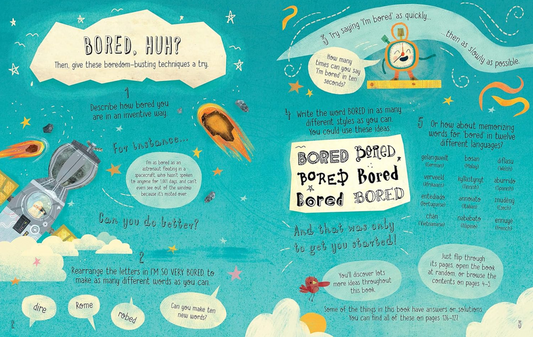 BORED, HUH?
Then, give these boredom-busting techniques a try.
1
Describe how bored you
are in an inventive way.
For instance...
I'm as bored as an
astronaut floating in a
spacecraft, who hasn't spoken
to anyone for
days and can't
even see out of the window
because it's misted over.
Can you do better?
2
Rearrange the letters in I'M SO VERY BORED to
make as many different words as you can.
dire
Rome
robed
Can you make ten
new words?
3
Try saying 'I'm bored' as quickly...
then as slowly as possible.
How many
times can you say
'I'm bored' in ten
seconds?
4
Write the word BORED in as many
different styles as you can.
You could use these ideas.
BORED BORED
BORED Bored
Bored BORED
And that was only
to get you started!
5
Or how about memorizing
words for 'bored' in twelve
different languages?
gelangweilt
(German)
verveeld
uttråkad
annoiato
aburrido
(Spanish)
ennuyé
(French)
You'll discover lots
more ideas throughout
this book.
Just flip through
its pages, open the book
at random, or browse the
contents on pages 4-7.
Some of the things in this book have answers or solutions.
You can find all of these on pages